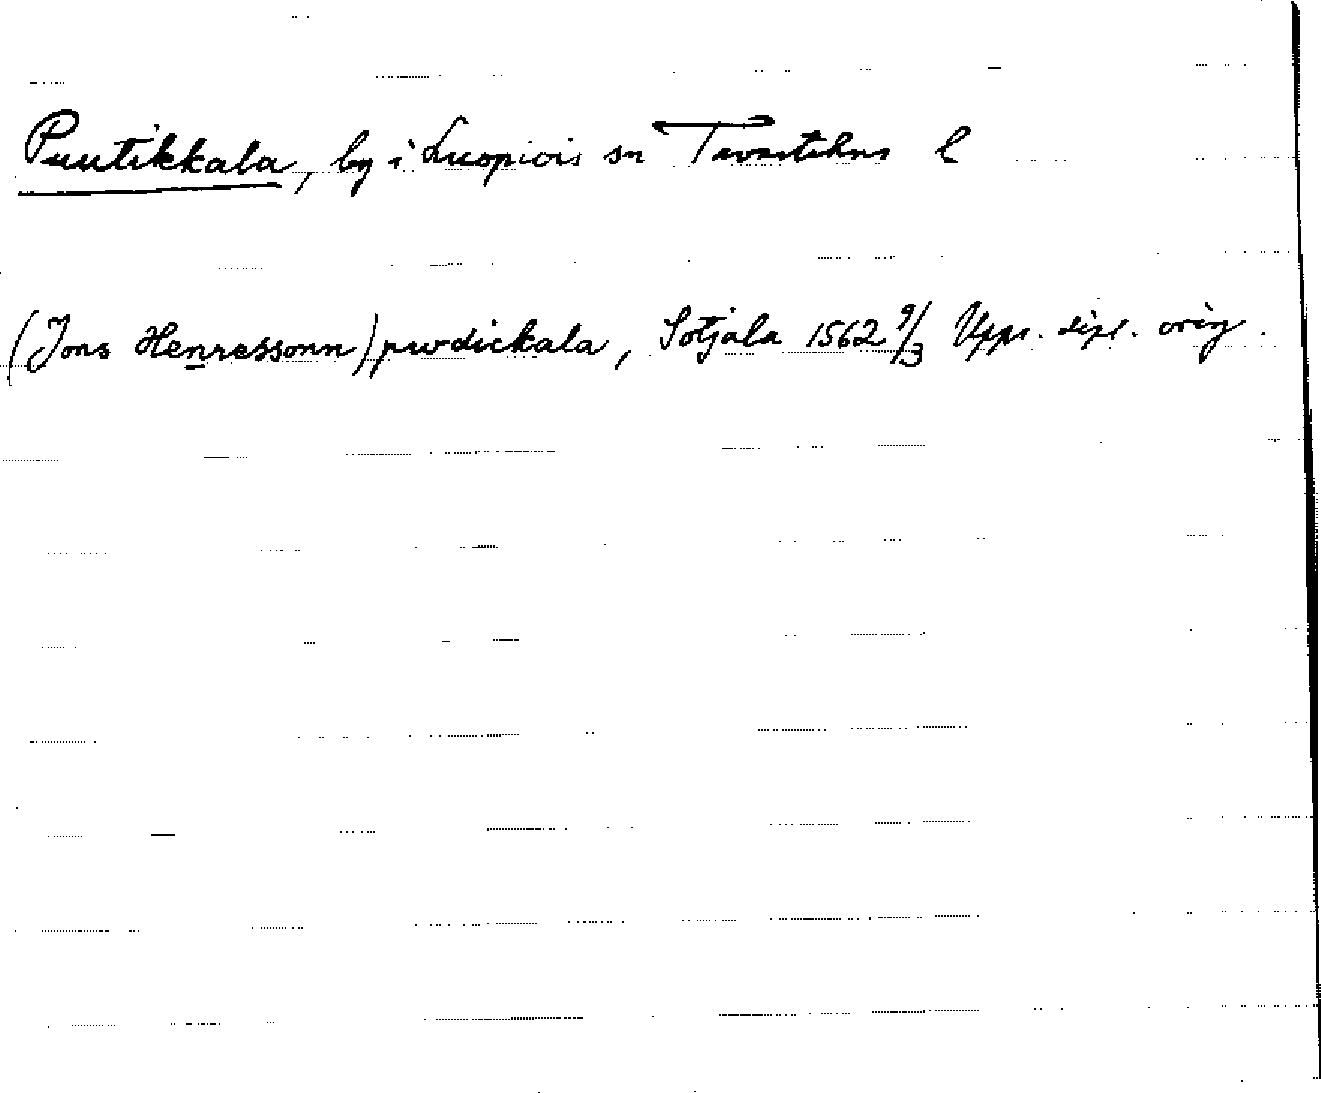 Puutikkala, by i Luopiois sn Tavastehus l
(Jons Henressonn) purdickala, Sotjala 1562 9/3 Upps. dipl. orig.